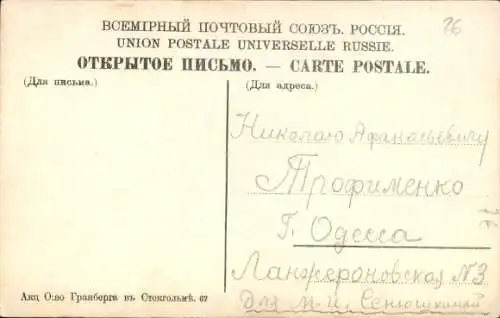 26
ВСЕМІРНЫЙ ПОЧТОВЫЙ СОЮЗЪ. РОССІЯ.
UNION POSTALE UNIVERSELLE RUSSIE.
ОТКРЫТОЕ ПИСЬМО. — CARTE POSTALE.
(Для письма.)
(Для адреса.)
Николаю Афанасьевичу
Трофименко
Г. Одесса
Ланжероновская №3
Для М.И.
Акц О:во Гранберга въ Стокгольмѣ. 67